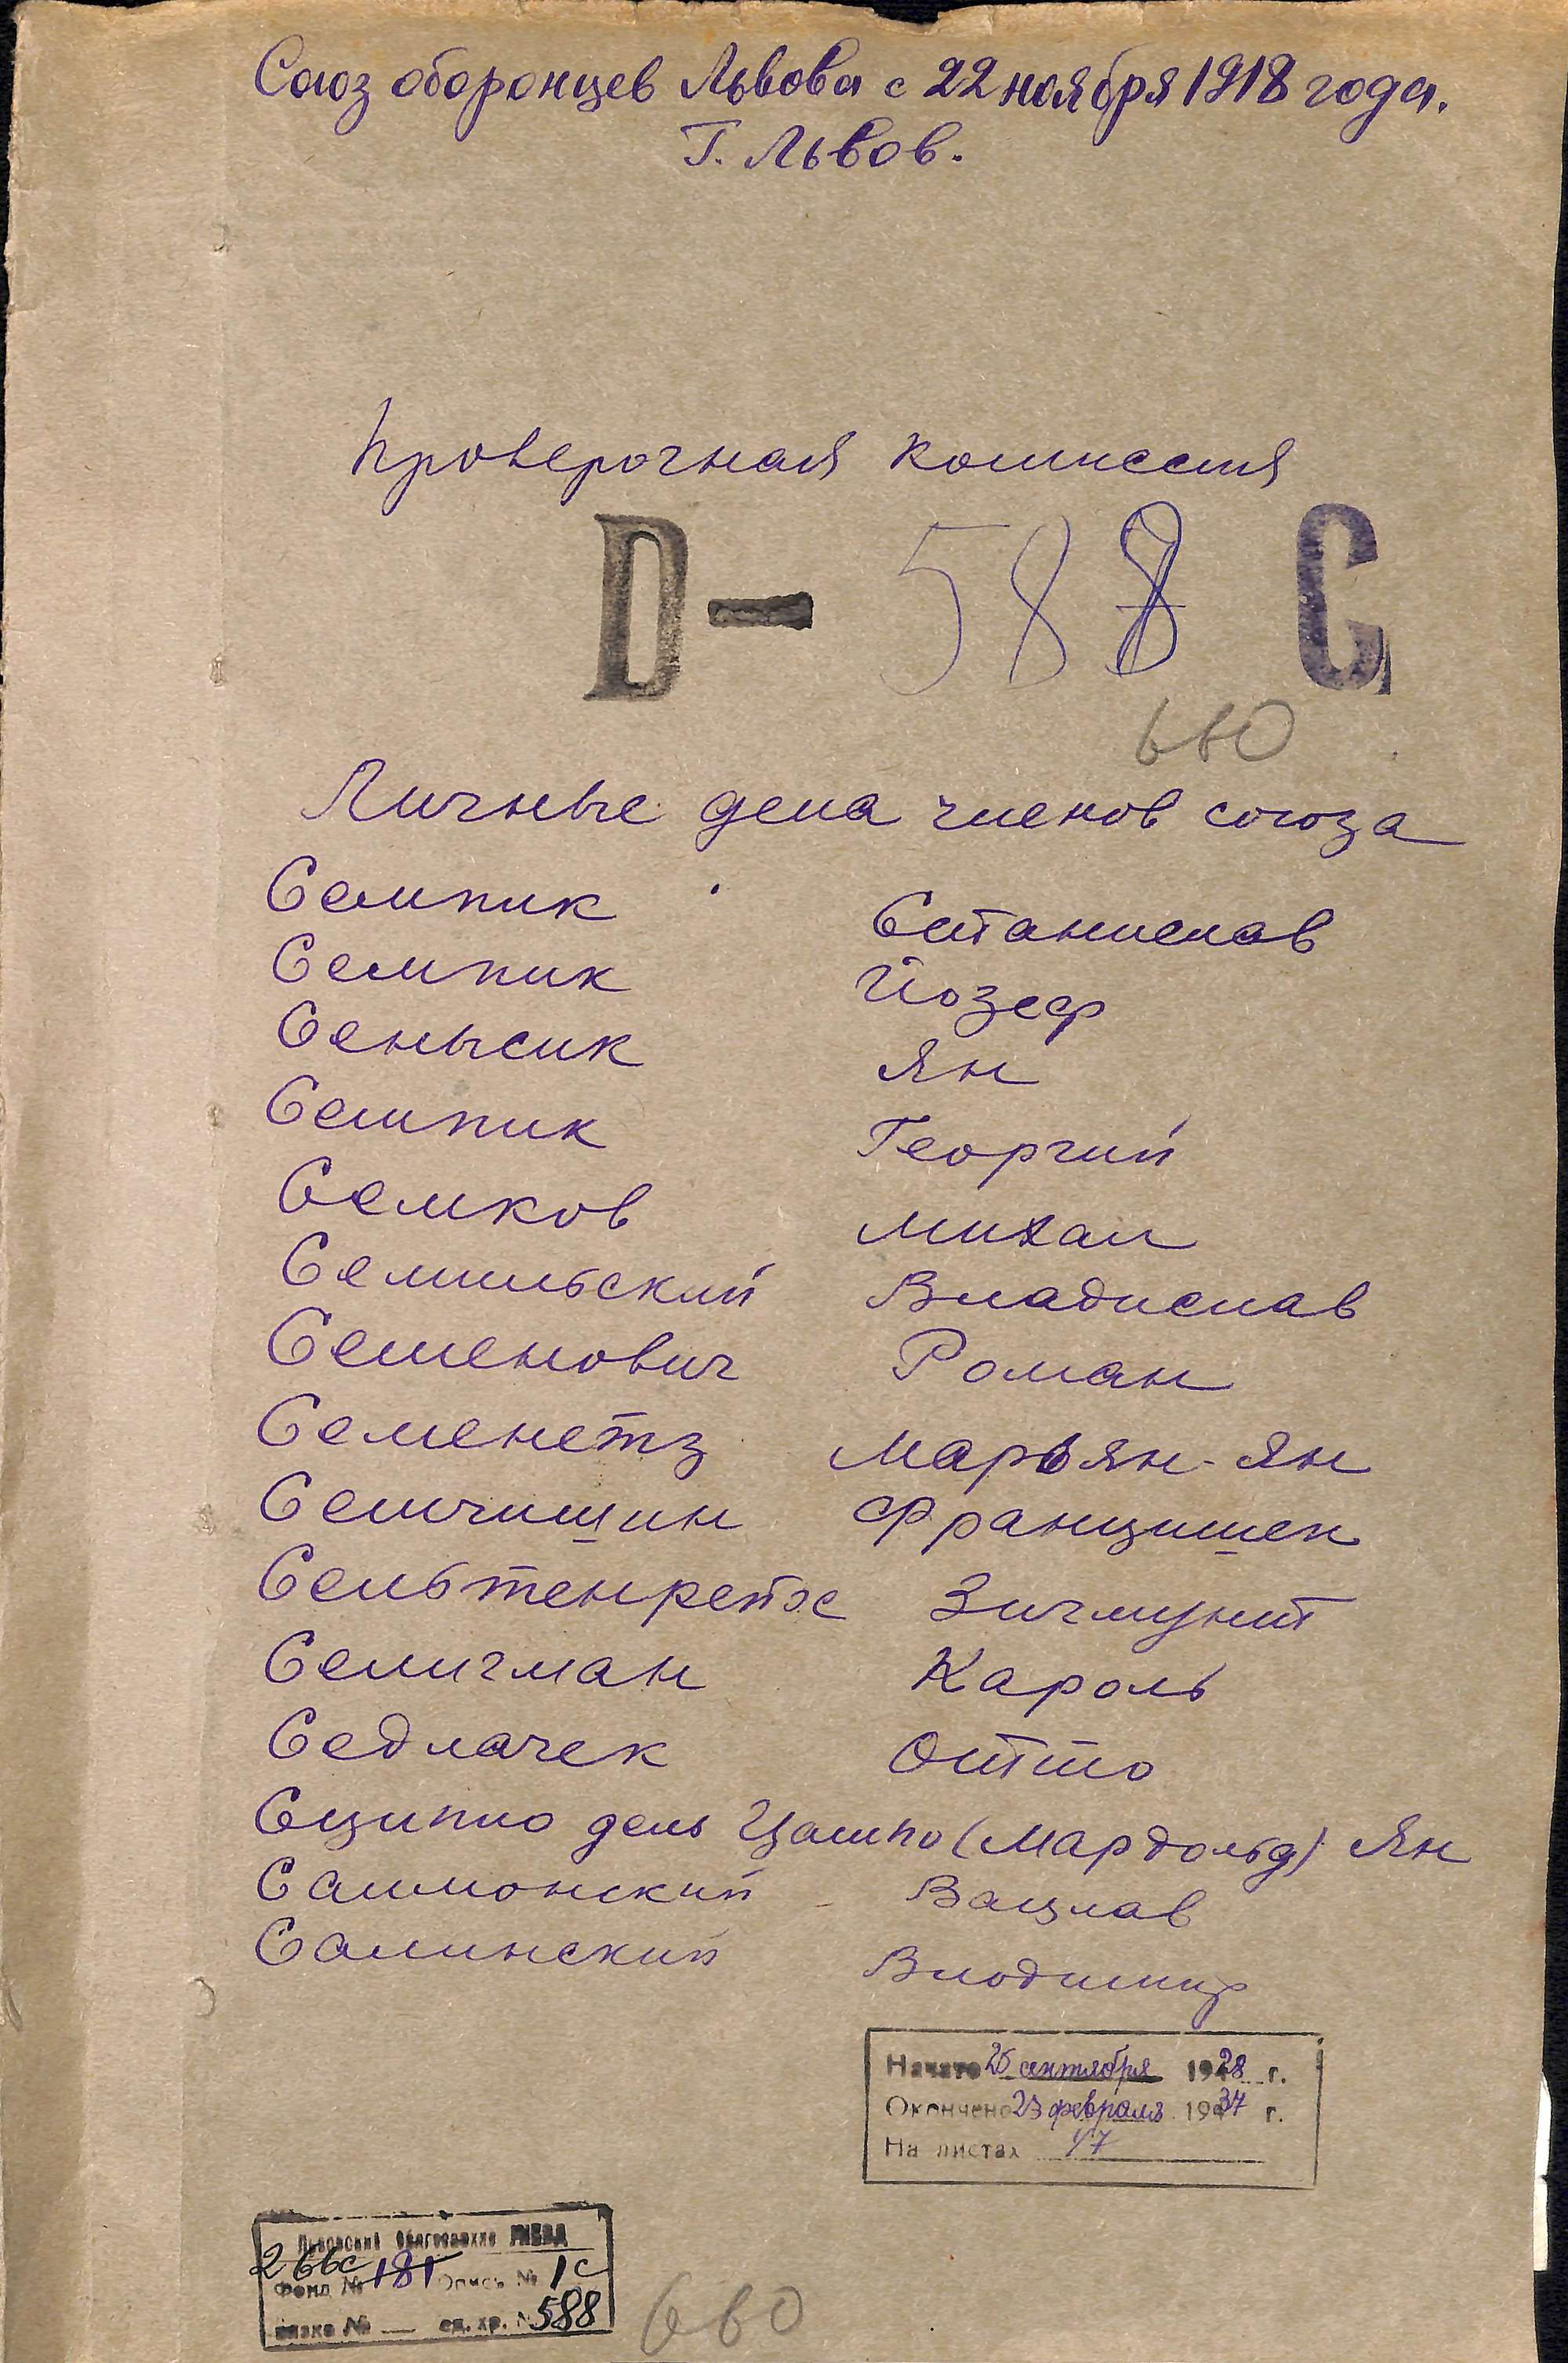 Союз оборонцев Львова с 22 ноября 1918 года.
Г. Львов.
Проверочная комиссия
D — 588 С
660
Личные дела членов союза
Семпик Станислав
Семпик Йозеф
Сенысик Ян
Семпик Георгий
Семков Михал
Семильский Владислав
Семенович Роман
Семенетз Марьян-Ян
Семчишин Францишек
Сельтенрейх Зигмунт
Селигман Кароль
Седлачек Отто
Сципио дель Цампо (Мардольд) Ян
Салмонский Вацлав
Салинский Влодимир
Начато 25 сентября 1928 г.
Окончено 23 февраля 1934 г.
На листах 47
Львовский Облгосархив УНКВД
266с
Фонд № 181 Опись № 1с
вязка № — ед. хр. № 588
660